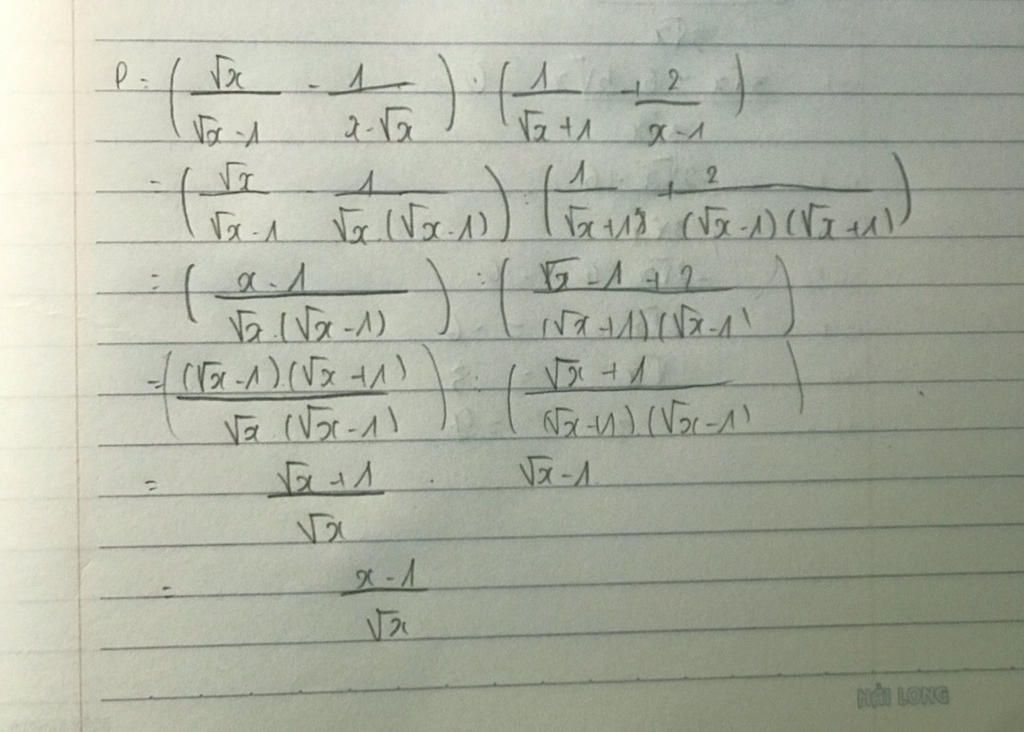 P = (√x/(√x-1) - 1/(x-√x)) : (1/(√x+1) + 2/(x-1))
= (√x/(√x-1) - 1/(√x.(√x-1))) : (1/(√x+1) + 2/((√x-1)(√x+1)))
= ((x-1)/(√x.(√x-1))) : ((√x-1+2)/((√x+1)(√x-1)))
= ((√x-1).(√x+1)/(√x.(√x-1))) : ((√x+1)/((√x+1).(√x-1)))
= (√x+1)/√x . √x-1
= (x-1)/√x
HẢI LONG